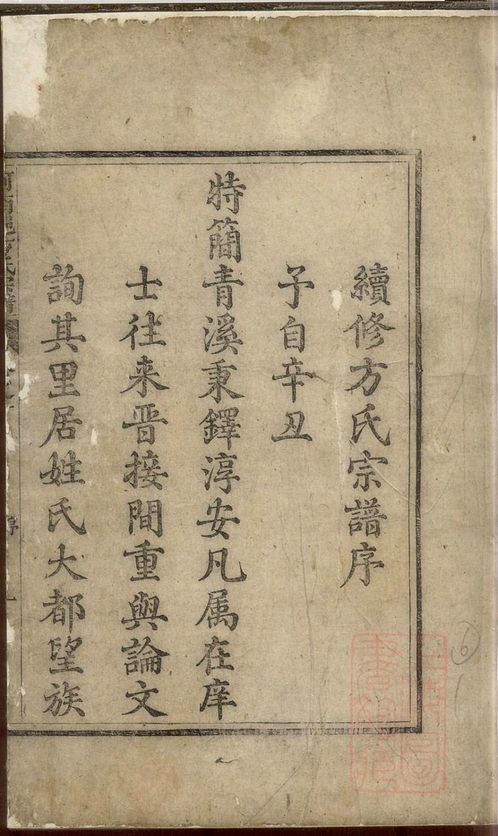 續修方氏宗譜序
予自辛丑
特簡青溪秉鐸淳安凡属在庠
士往来晋接間重與論文
詢其里居姓氏大都望族
6
1